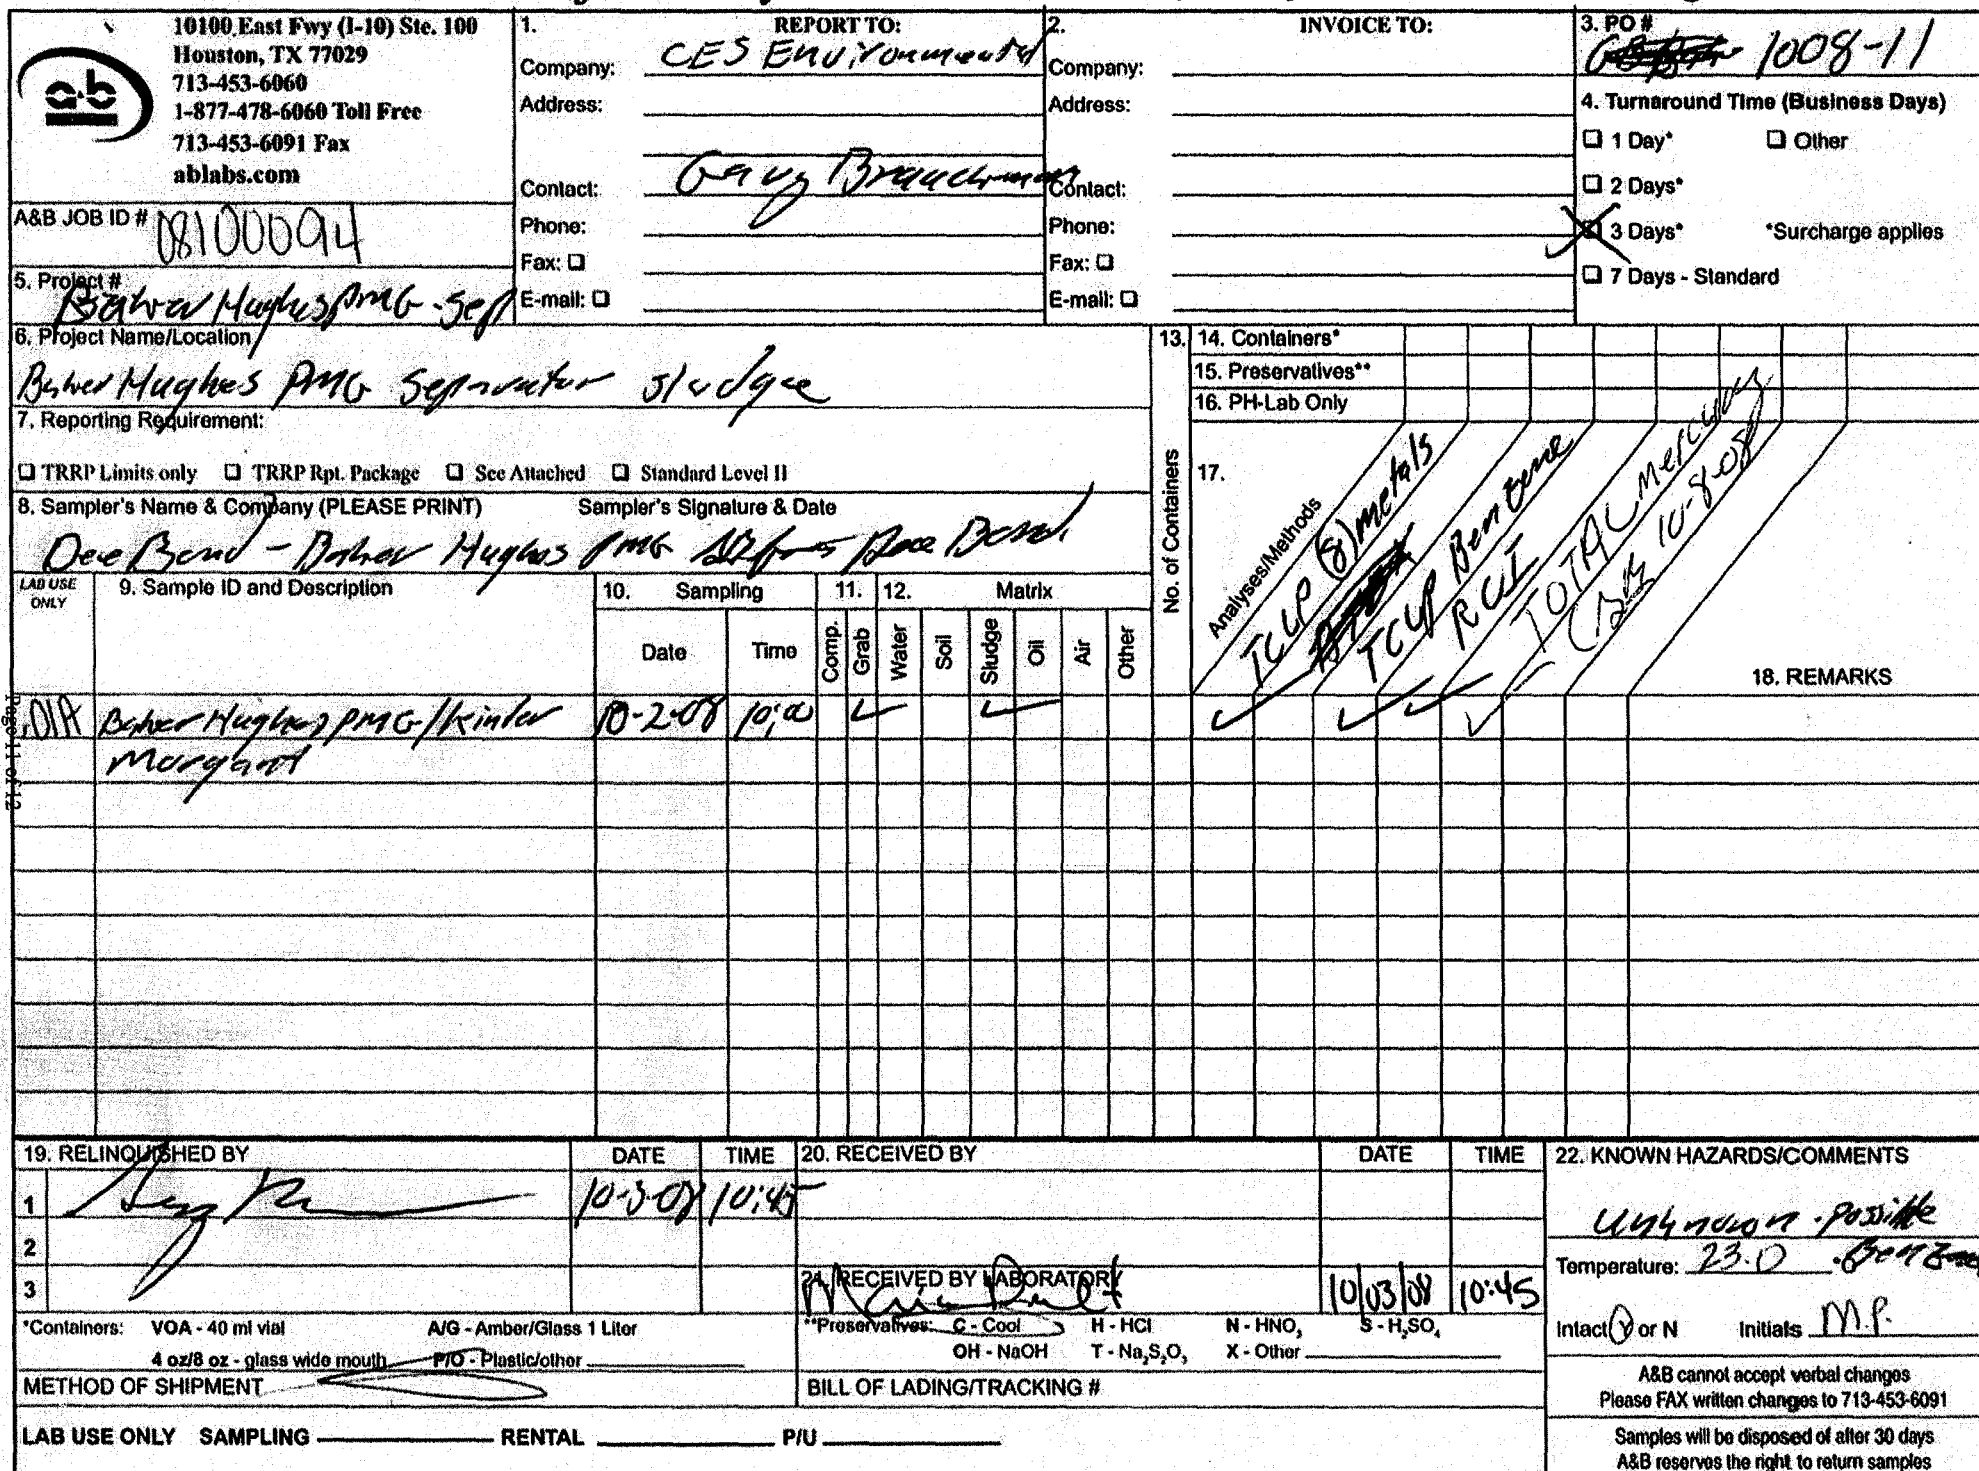 10100 East Fwy (I-10) Ste. 100
Houston, TX 77029
713-453-6060
1-877-478-6060 Toll Free
713-453-6091 Fax
ablabs.com
a·b
A&B JOB ID # 08100094
5. Project #
Baker Hughes PMG - Sep
1. REPORT TO:
Company: CES Environmental
Address:
Contact: Gary
Phone:
Fax: ☐
E-mail: ☐
2. INVOICE TO:
Company:
Address:
Contact:
Phone:
Fax: ☐
E-mail: ☐
3. PO #
1008-11
4. Turnaround Time (Business Days)
☐ 1 Day* ☐ Other
☐ 2 Days*
☒ 3 Days* *Surcharge applies
☐ 7 Days - Standard
6. Project Name/Location
Baker Hughes PMG Separator sludge
7. Reporting Requirement:
☐ TRRP Limits only ☐ TRRP Rpt. Package ☐ See Attached ☐ Standard Level II
8. Sampler's Name & Company (PLEASE PRINT) Sampler's Signature & Date
Dee Bond - Baker Hughes PMG Dee Bond
13. No. of Containers
14. Containers*
15. Preservatives**
16. PH-Lab Only
17. Analyses/Methods
TCLP (8) metals
TCLP Benzene
RCI
TOTAL Mercury
10-8-08
18. REMARKS
LAB USE ONLY
9. Sample ID and Description
10. Sampling
Date Time
11. Comp. Grab
12. Matrix
Water Soil Sludge Oil Air Other
.01A Baker Hughes PMG/Kinder 10-2-08 10:00 ✓ ✓ ✓ ✓ ✓ ✓
Morgan
Page 11 of 12
19. RELINQUISHED BY DATE TIME
1 10-3-08 10:45
2
3
20. RECEIVED BY DATE TIME
21. RECEIVED BY LABORATORY
10/03/08 10:45
22. KNOWN HAZARDS/COMMENTS
Unknown - possible
Benzene
Temperature: 23.0
Intact Y or N Initials M.P.
*Containers: VOA - 40 ml vial A/G - Amber/Glass 1 Liter
4 oz/8 oz - glass wide mouth P/O - Plastic/other
**Preservatives: C - Cool H - HCl N - HNO₃ S - H₂SO₄
OH - NaOH T - Na₂S₂O₃ X - Other
METHOD OF SHIPMENT
BILL OF LADING/TRACKING #
A&B cannot accept verbal changes
Please FAX written changes to 713-453-6091
LAB USE ONLY SAMPLING RENTAL P/U
Samples will be disposed of after 30 days
A&B reserves the right to return samples